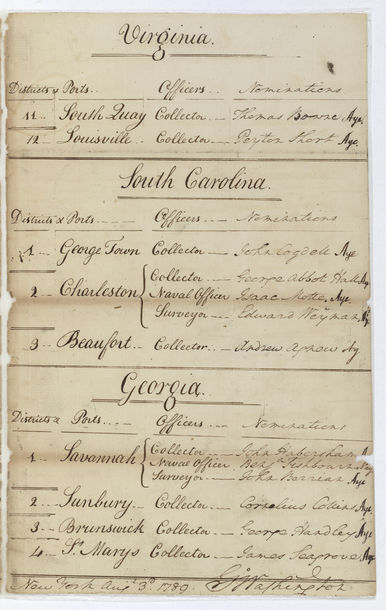 Virginia.
Districts & Ports.. Officers.. Nominations
11.. South Quay Collector — Thomas Bowne Aye.
12.. Louisville.. Collector — Peyton Short Aye.
South Carolina.
Districts & Ports — Officers... Nominations
1.. George Town Collector — John Cogdell Aye
Collector — George Abbot Hall Aye
2.. Charleston Naval Officer Isaac Motte, Aye.
Surveyor — Edward Weyman, Ay.
3.. Beaufort.. Collector... Andrew Agnew Ay.
Georgia.
Districts & Ports... Officers... Nominations
Collector — John Habersham
1... Savannah Naval Officer Benj. Fishbourn
Surveyor — John Berrian Aye
2.. Sunbury.. Collector — Cornelius Collins Aye
3.. Brunswick Collector — George Handley, Aye
4.. St. Marys Collector — James Seagrove, Aye
New York Augt. 3d. 1789. Go. Washington